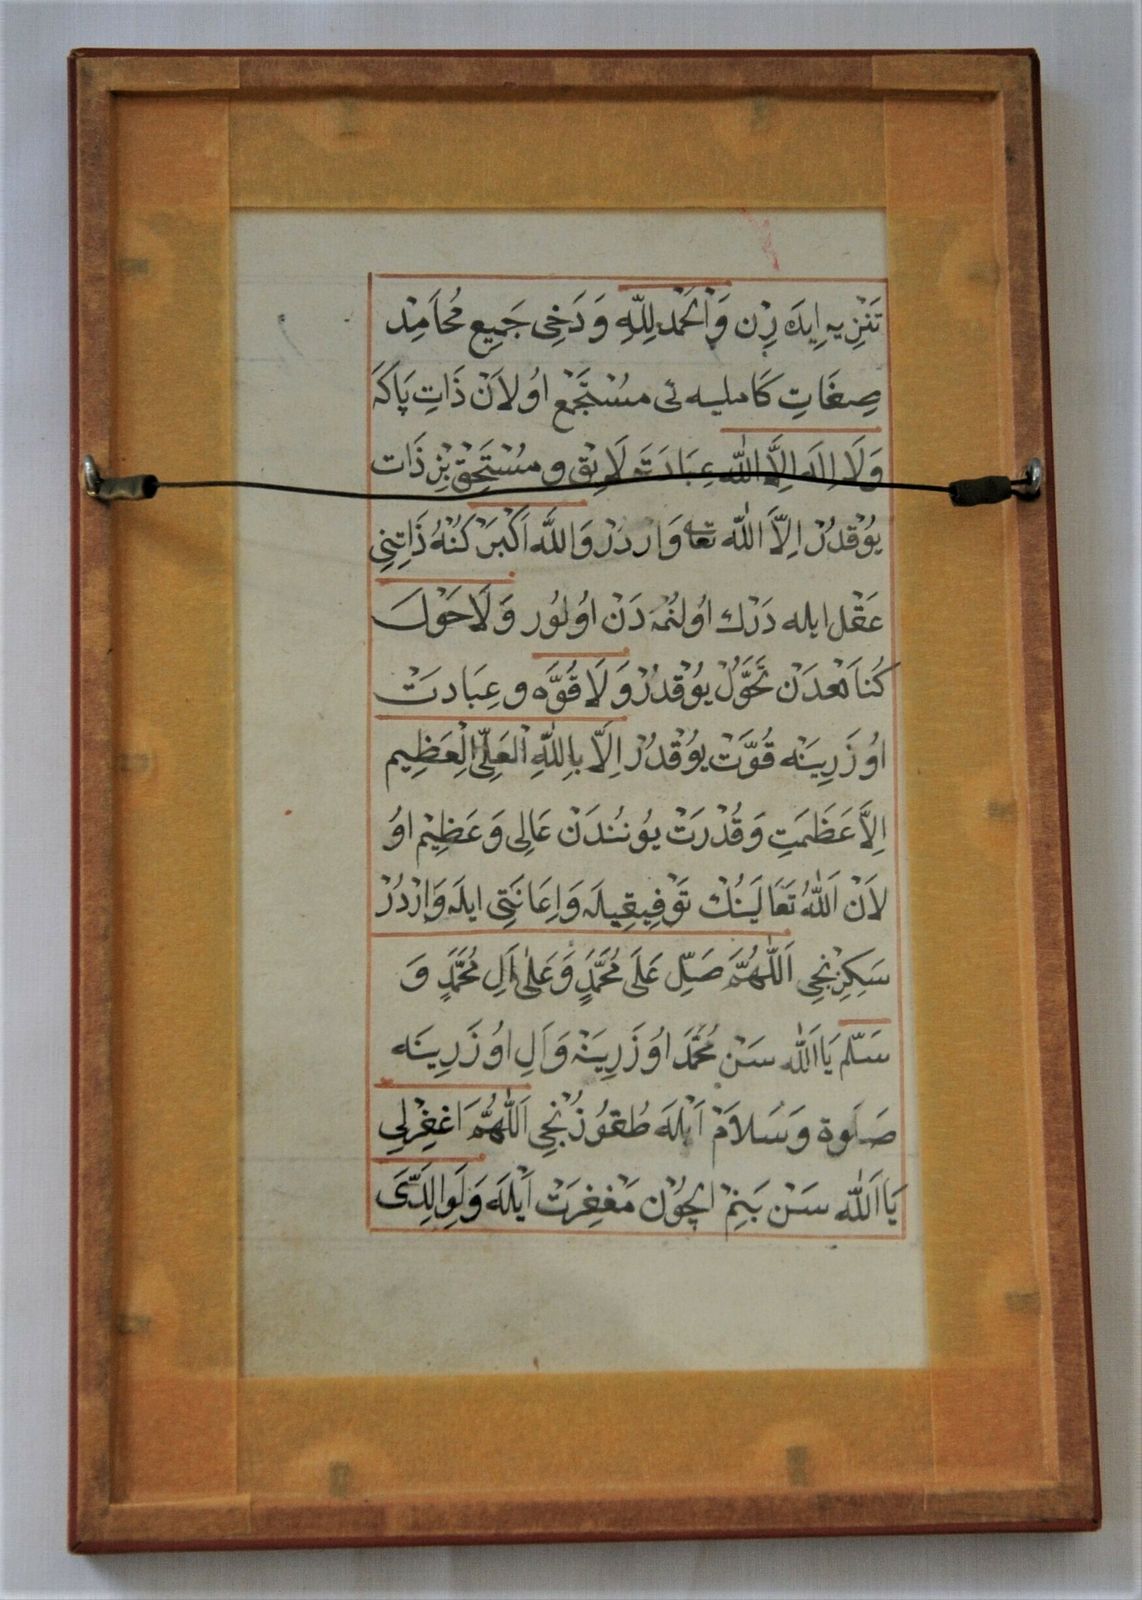 تَنْزِيهِ ايدَرِزْن وَالْحَمْدُ لِلّٰهِ وَدَخِى جَمِيعِ مُحَامِدْ
صِفَاتِ كَامليه ئى مسْتَجْمِعْ اوُلاَنْ ذَاتِ پَاكَه
وَلَا اِلٰهَ اِلَّا اللّٰه عِبَادَتَه لَايِقْ و مسْتَحِقْ بِرْ ذَات
يُوْقدُرْ اِلَّا اللّٰه تعا وَارْدُرْ وَاللّٰهُ اَكْبَرْ كُنْهُ ذَاتِنِى
عَقْل ايله دَرْك اوُلنْمَه دَنْ اوُلوُر وَلَا حَوْلَ
كُنَاهْدَنْ تَحَوُّلْ يوُقْدُرْ وَلَا قُوَّه و عِبَادتْ
اوُزَرِينَه قُوَّتْ يوُقْدُرْ اِلَّا بِاللّٰهِ الْعَلِىِّ الْعَظِيم
اِلَّا عَظَمَتِ وَقُدْرَتْ يوُنُندَنْ عَالِى وَعَظِيْم اوُ
لاَنْ اَللّٰهُ تَعَالَينُكْ تَوْفِيقِيلَه وَاِعَانَتِى ايله وَارْدُرْ
سَكِزِنْجِى اَللّٰهُمَّ صَلِّ عَلَى مُحَمَّدٍ وَعَلٰى اٰلِ مُحَمَّدٍ وَ
سَلّم يَا اَللّٰه سَنْ مُحَمَّد اوُزَرِينَه وَاٰلِ اوُزَرِينَه
صَلَوة وَسَلاَمْ اَيْلَه طُقوُزُنْجِى اَللّٰهُمَّ اغْفِرْلِى
يَا اَللّٰه سَنْ بَنِمْ اِچُوْن مَغْفِرَتْ اَيْلَه وَلِوَالِدَىَّ